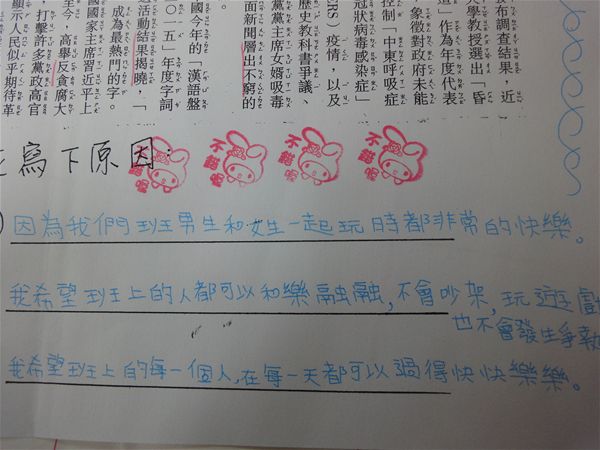 布調查結果，近
大學教授選出「昏
道」作為年度代表
象徵對政府未能
控制「中東呼吸症
冠狀病毒感染症」
ERS）疫情，以及
歷史教科書爭議、
黨黨主席女婿吸毒
面新聞層出不窮的
國今年的「漢語盤
一五」年度字詞
活動結果揭曉，「
成為最熱門的字。
國家主席習近平上
至今，高舉反貪腐大
，打擊許多黨政高官
顯示人民似乎期待革
寫下原因：
不錯喔
不錯喔
不錯喔
不錯喔
因為我們班男生和女生一起玩時都非常的快樂。
我希望班上的人都可以和樂融融，不會吵架，玩遊戲
也不會發生爭執
我希望班上的每一個人，在每一天都可以過得快快樂樂。